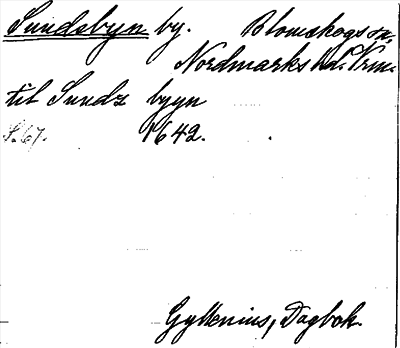 Sundsbyn by. Blomskogs sn.
Nordmarks hd. Vrm.
til Sundz byyn
S. 67. 1642.
Gyllenius, Dagbok.